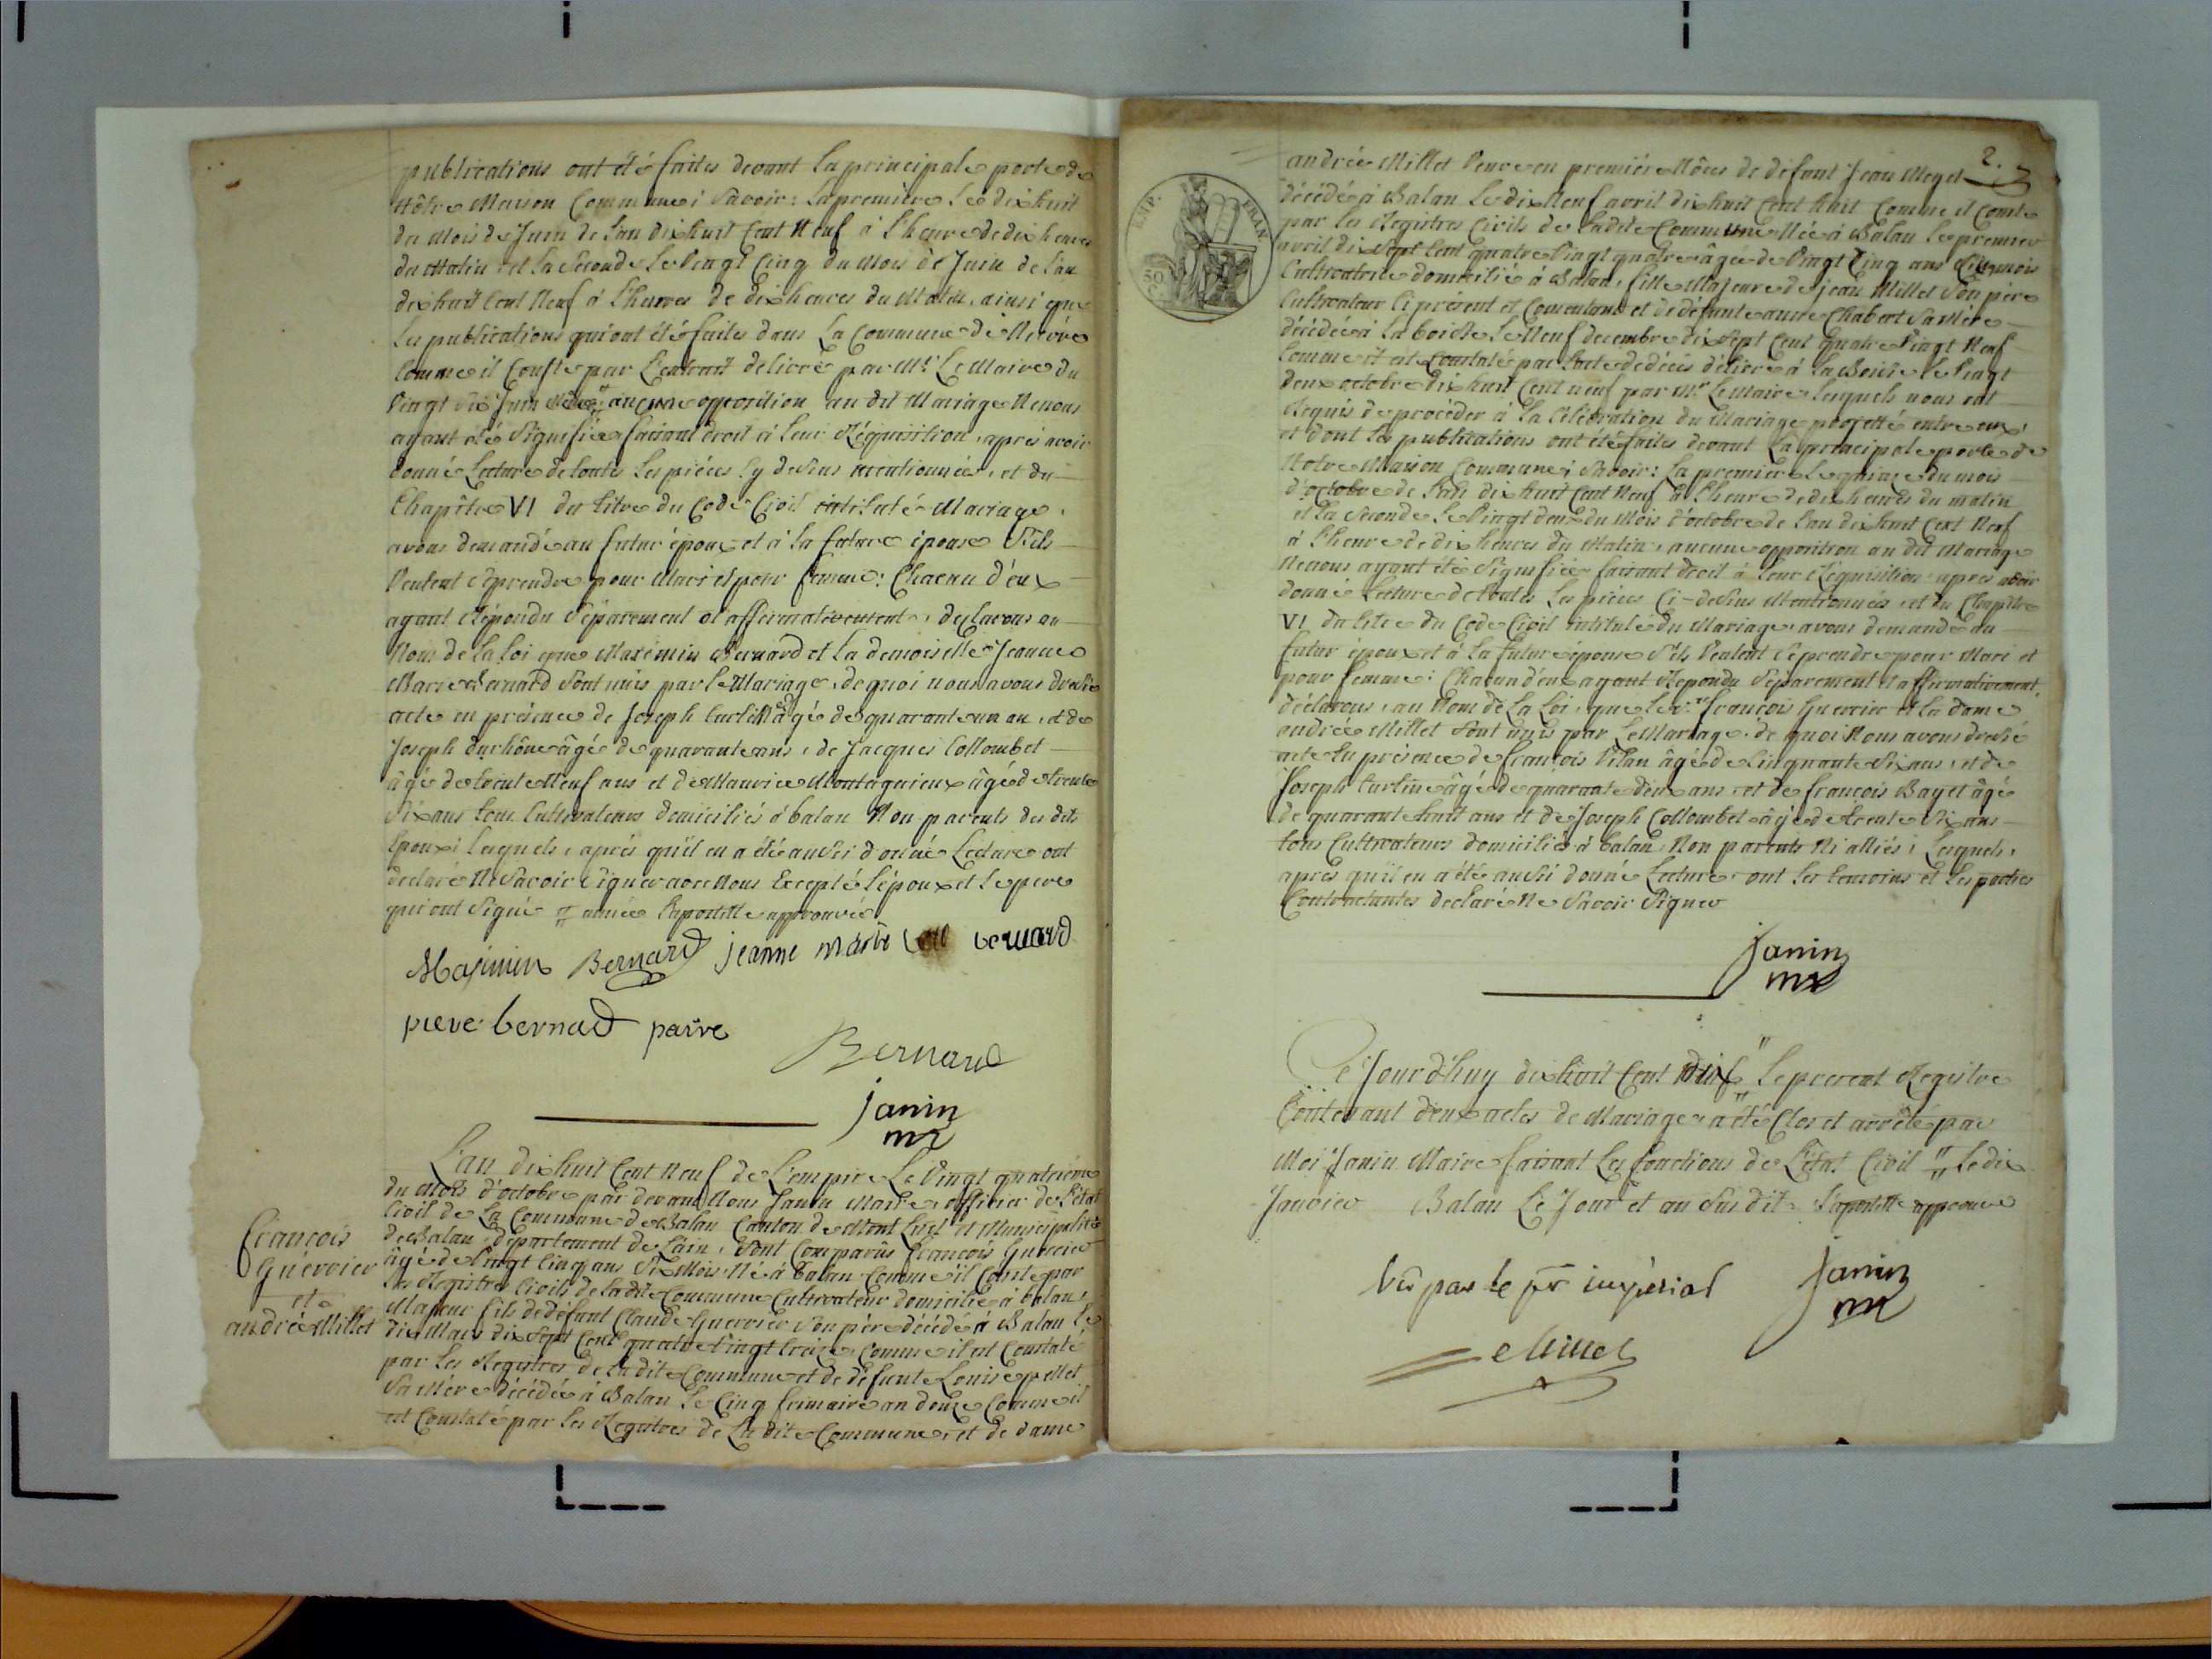 publications ont été faites devant la principale porte de
Nôtre Maison Commune; Savoir: la première le dixhuit
du Mois de Juin de l'an dixhuit Cent Neuf à l'heure de dix heures
du Matin et la Seconde le Vingt Cinq du Mois de Juin de l'an
dixhuit Cent Neuf à l'heure de dix heures du Matin, ainsi que
les publications qui ont été faites dans la Commune de
Comme il Conste par l'extrait delivré par Mr Le Maire du
Vingt Six Juin aucune opposition au dit Mariage Ne nous
ayant été Signifiée faisant droit à leur Réquisition, après avoir
donné Lecture de toutes les pièces Cy dessus mentionnées, et du
Chapitre VI du titre du Code Civil intitulé Mariage,
avons demandé au futur époux et à la future épouse S'ils
Veulent Se prendre pour Mari et pour femme: Chacun d'eux
ayant Répondu Séparement et affirmativement, declarons au
Nom de la Loi que Maximin Bernard et la demoiselle Jeanne
Marie Bernard Sont unis par le Mariage, de quoi nous avons dressé
acte en présence de Joseph Curlin âgé de quarante un an, et de
Joseph durhône âgé de quarante ans, de Jacques Collombet
âgé de trente Neuf ans et de Maurice Montagnieux âgé de trente
Six ans tous Cultivateurs domiciliés à balan Non parents des dits
Epoux; lesquels, après qu'il en a été aussi donné Lecture ont
declaré Ne Savoir Signer avec Nous Excepté l'époux et le pere
qui ont Signé " année l'apostille approuvée
Maximin Bernard jeanne marie bernard
piere bernard paire
Bernard
janin
mr
L'an dixhuit Cent Neuf de L'empire Le Vingt quatrième
du Mois d'octobre par devant Nous Janin Maire officier de l'état
Civil de La Commune de Balan Canton de Mont Luel et Municipalité
de Balan, département de L'ain, Sont Comparûs François Guerrier
âgé de Vingt Cinq ans Six Mois, Né à Balan Comme il Conste par
les Registres Civils de la dite Commune Cultivateur domicilié à balan,
Majeur fils de défunt Claude Guerrier Son père décédé à Balan le
dix Mars dix Sept Cent quatre Vingt treize, Comme il est Constaté
par les Registres de la dite Commune et de défunte Louise pellet
Sa Mère décédée à Balan le Cinq frimaire an douze Comme il
est Constaté par les Registres de la dite Commune, et de dame
François
Guerrier
et
andrée Millet
2.
EMP. FRAN
andrée Millet Veuve en première Nôces de défunt Jean Meget
décédé à Balan le dix Neuf avril dixhuit Cent huit Comme il Conste
par les Registres Civils de ladite Commune Née à Balan le premier
avril dix Sept Cent quatre Vingt quatre âgée de Vingt Cinq ans Six mois
Cultivatrice domiciliée à Balan, fille Majeure de jean Millet Son père
Cultivateur Ci présent et Consentant et de défunte anne Chabert Sa Mère
décédée à la boisse le Neuf decembre dix Sept Cent quatre Vingt Neuf
Comme il est Constaté par l'acte de décès délivré à la Boisse le Vingt
deux octobre dixhuit Cent neuf par Mr Le Maire, lesquels nous ont
Requis de procéder à la Célébration du Mariage projetté entre eux,
et dont les publications ont été faites devant la principale porte de
Notre Maison Commune; Savoir: la première le quinze du mois
d'octobre de l'an dixhuit Cent Neuf à l'heure de dix heures du matin
et la Seconde le Vingt deux du Mois d'octobre de l'an dixhuit Cent Neuf
à l'heure de dix heures du Matin, aucune opposition au dit Mariage
Ne nous ayant été Signifiée faisant droit à leur Réquisition après avoir
donné Lecture de toutes les pièces Ci-dessus Mentionnées, et du Chapitre
VI du titre du Code Civil intitulé du Mariage, avons demandé au
futur époux et à la future épouse S'ils Veulent Se prendre pour Mari et
pour femme: Chacun d'eux ayant Répondu Séparement et affirmativement,
déclarons, au Nom de la Loi, que le Sr François Guerrier et la dame
andrée Millet Sont unis par Le Mariage, de quoi Nous avons dressé
acte en présence de françois Vilan âgé de Cinquante Six ans, et de
Joseph Curlin âgé de quarante deux ans et de françois Bayet âgé
de quarante huit ans et de Joseph Collombet âgé de trente Six ans
tous Cultivateurs domiciliés à balan, Non parents Ni alliés; Lesquels,
après qu'il en a été aussi donné Lecture, ont les temoins et les parties
Contractantes declaré Ne Savoir Signer
janin
mr
Ce Jourd'huy dixhuit Cent dix " le present Registre
Contenant deux actes de Mariage, a été Clos et arrêté par
Moi Janin Maire faisant les fonctions de L'état Civil " Le dix
Janvier Balan Le Jour et an Susdit. l'apostille approuvé
Vu par le pr imperial
janin
mr